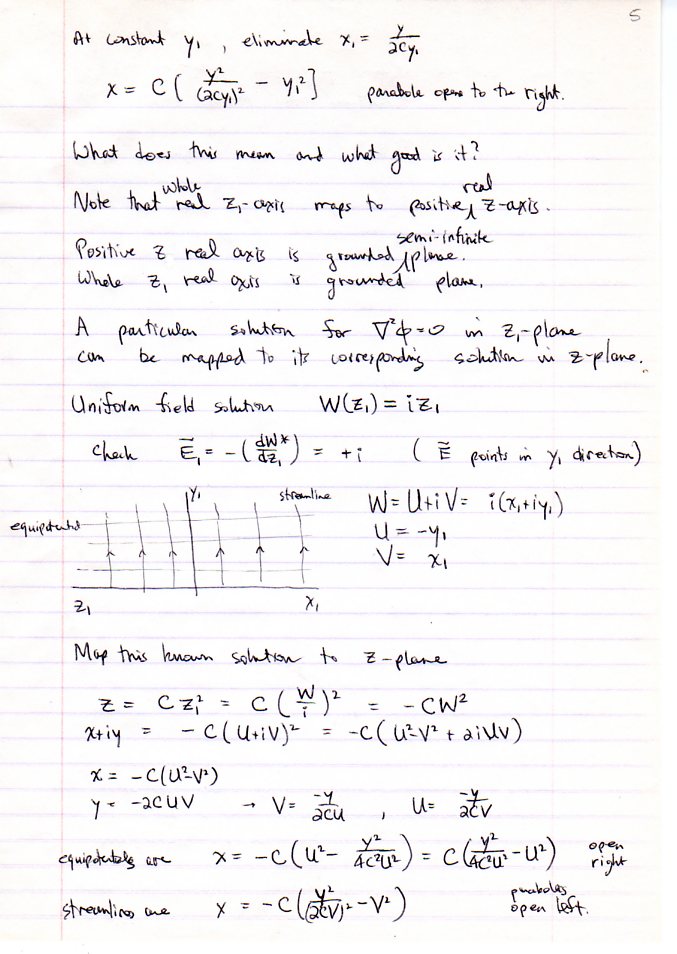 5
At constant y₁ , eliminate x₁ = y/2Cy₁
x = C [ y²/(2Cy₁)² - y₁² ] parabola opens to the right.
What does this mean and what good is it?
Note that whole real z₁-axis maps to positive real z-axis.
Positive z real axis is grounded semi-infinite plane.
Whole z₁ real axis is grounded plane.
A particular solution for ∇²ϕ = 0 in z₁-plane
can be mapped to its corresponding solution in z-plane.
Uniform field solution W(z₁) = i z₁
check Ẽ₁ = -(dW*/dz₁) = +i ( Ẽ points in y₁ direction)
y₁ streamline
equipotential
z₁ x₁
W = U+iV = i(x₁+iy₁)
U = -y₁
V = x₁
Map this known solution to z-plane
z = C z₁² = C (W/i)² = -CW²
x+iy = -C(U+iV)² = -C(U²-V² + 2iUV)
x = -C(U²-V²)
y = -2CUV → V = -y/2CU , U = -y/2CV
equipotentials are x = -C(U² - y²/4C²U²) = C(y²/4C²U² - U²) open right
streamlines are x = -C(y²/(2CV)² - V²) parabolas open left.